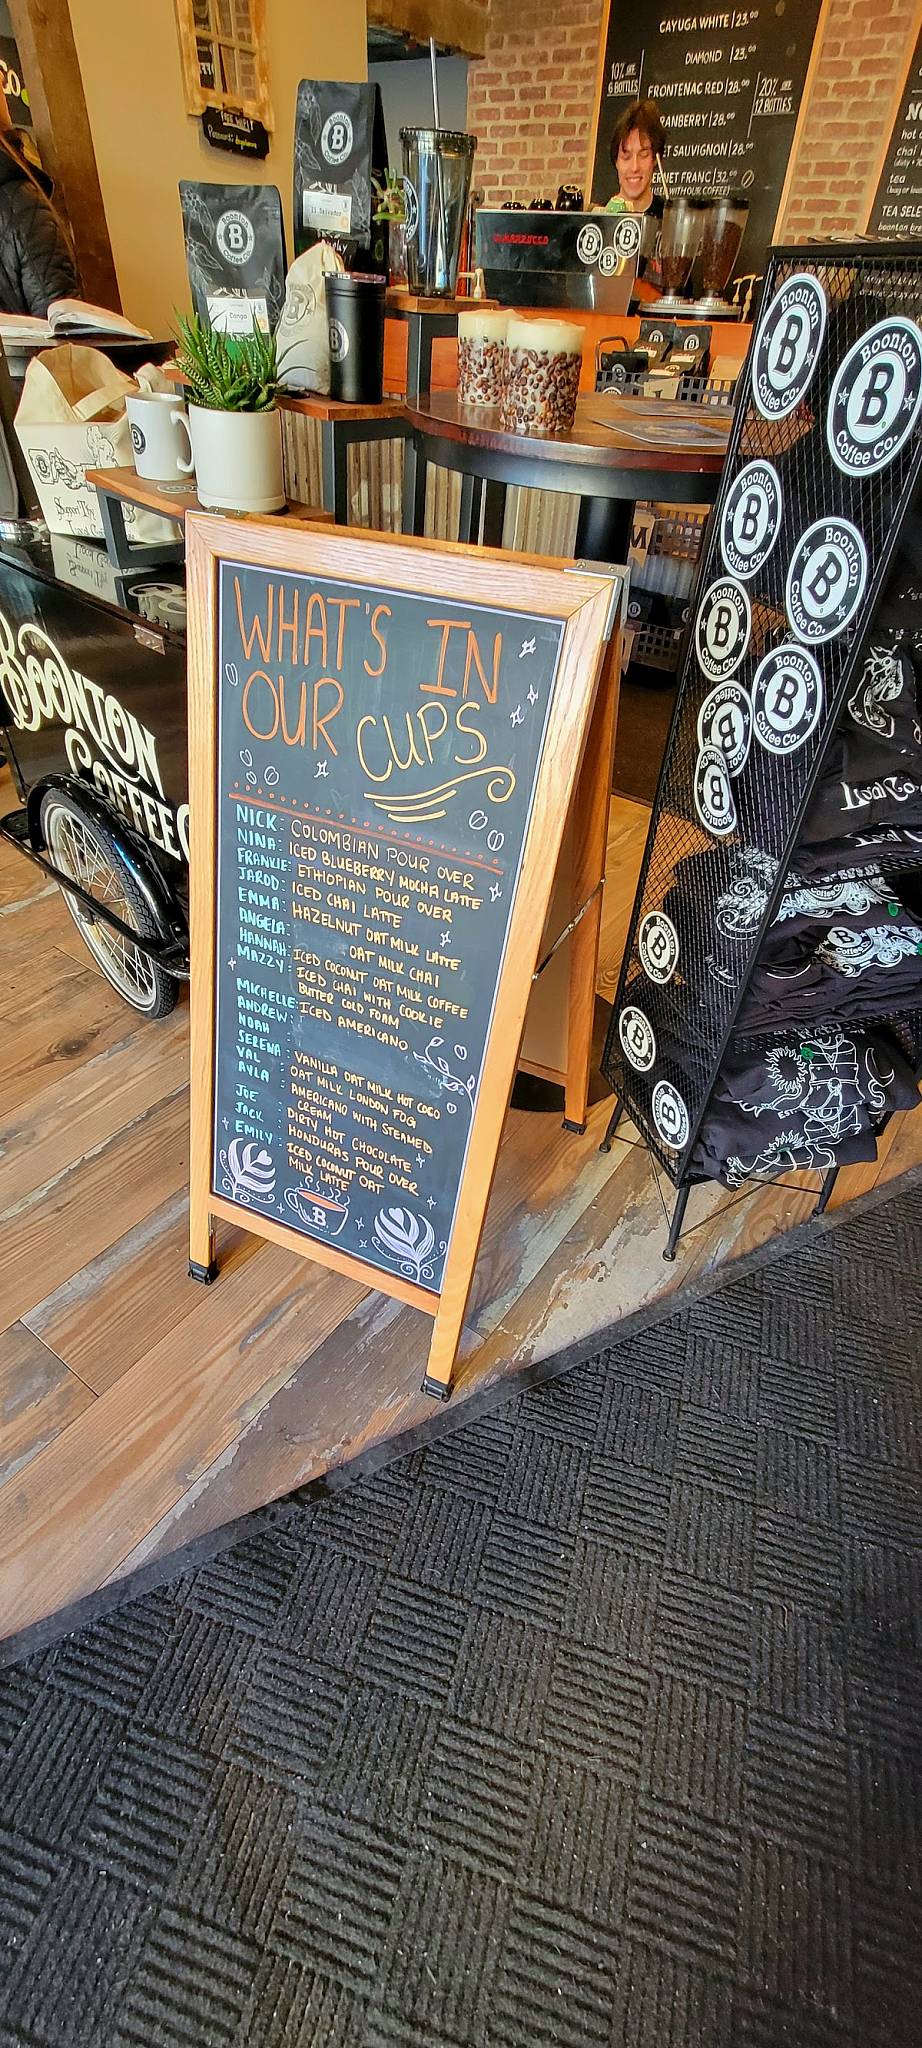 CAYUGA WHITE | 23.00
DIAMOND | 23.00
10% OFF
6 BOTTLES
FRONTENAC RED | 28.00
20% OFF
12 BOTTLES
RANBERRY | 28.00
T SAUVIGNON | 28.00
ERNET FRANC | 32.00
WITH OUR COFFEE)
hot
chai
tea
TEA SELE
boonton
FREE WIFI
Password:
Boonton
B
Coffee Co.
El Salvador
Boonton
B
Coffee Co.
Congo
B
Support
Local
BOONTON
COFFEE
WHAT'S IN
OUR CUPS
NICK: COLOMBIAN POUR OVER
NINA: ICED BLUEBERRY MOCHA LATTE
FRANKIE: ETHIOPIAN POUR OVER
JAROD: ICED CHAI LATTE
EMMA: HAZELNUT OAT MILK LATTE
ANGELA: OAT MILK CHAI
HANNAH: ICED COCONUT OAT MILK COFFEE
MAZZY: ICED CHAI WITH COOKIE
BUTTER COLD FOAM
MICHELLE: ICED AMERICANO
ANDREW:
NOAH
SERENA: VANILLA OAT MILK HOT COCO
VAL: OAT MILK LONDON FOG
AYLA: AMERICANO WITH STEAMED
CREAM
JOE: DIRTY HOT CHOCOLATE
JACK: HONDURAS POUR OVER
EMILY: ICED COCONUT OAT
MILK LATTE
B
Boonton
B
Coffee Co.
Boonton
B
Coffee Co.
Boonton
B
Coffee Co.
Boonton
B
Coffee Co.
Boonton
B
Coffee Co.
Boonton
B
Coffee Co.
Boonton
B
Coffee Co.
Boonton
B
B
B
B